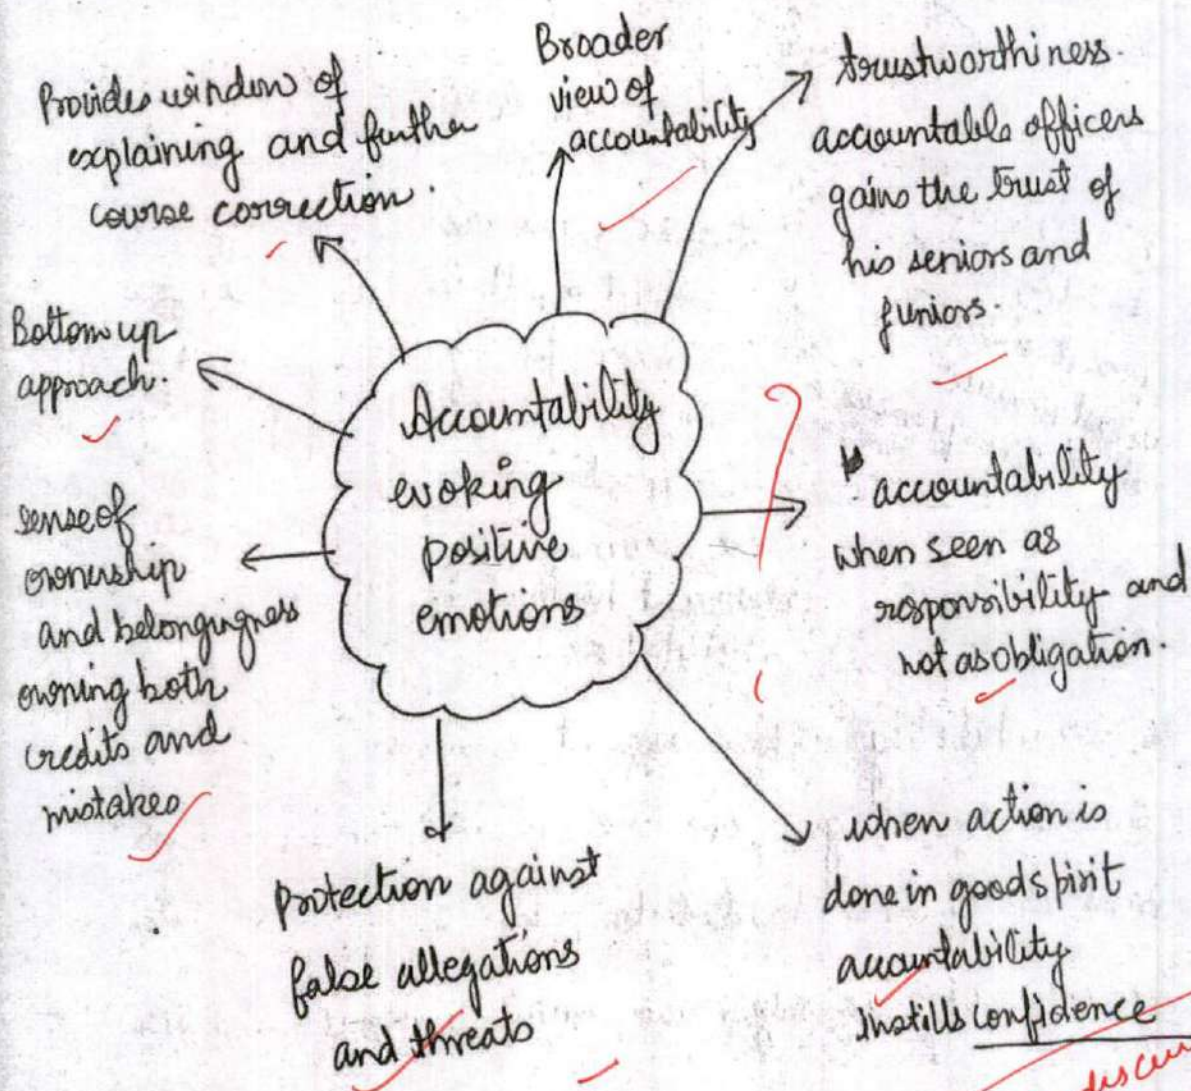 Provides window of
explaining and further
course correction.
Broader
view of
accountability
trustworthiness.
accountable officers
gains the trust of
his seniors and
juniors.
Bottom up
approach.
Accountability
evoking
positive
emotions
accountability
when seen as
responsibility and
not as obligation.
sense of
ownership
and belongingness
owning both
credits and
mistakes
Protection against
false allegations
and threats
when action is
done in good spirit
accountability
instills confidence